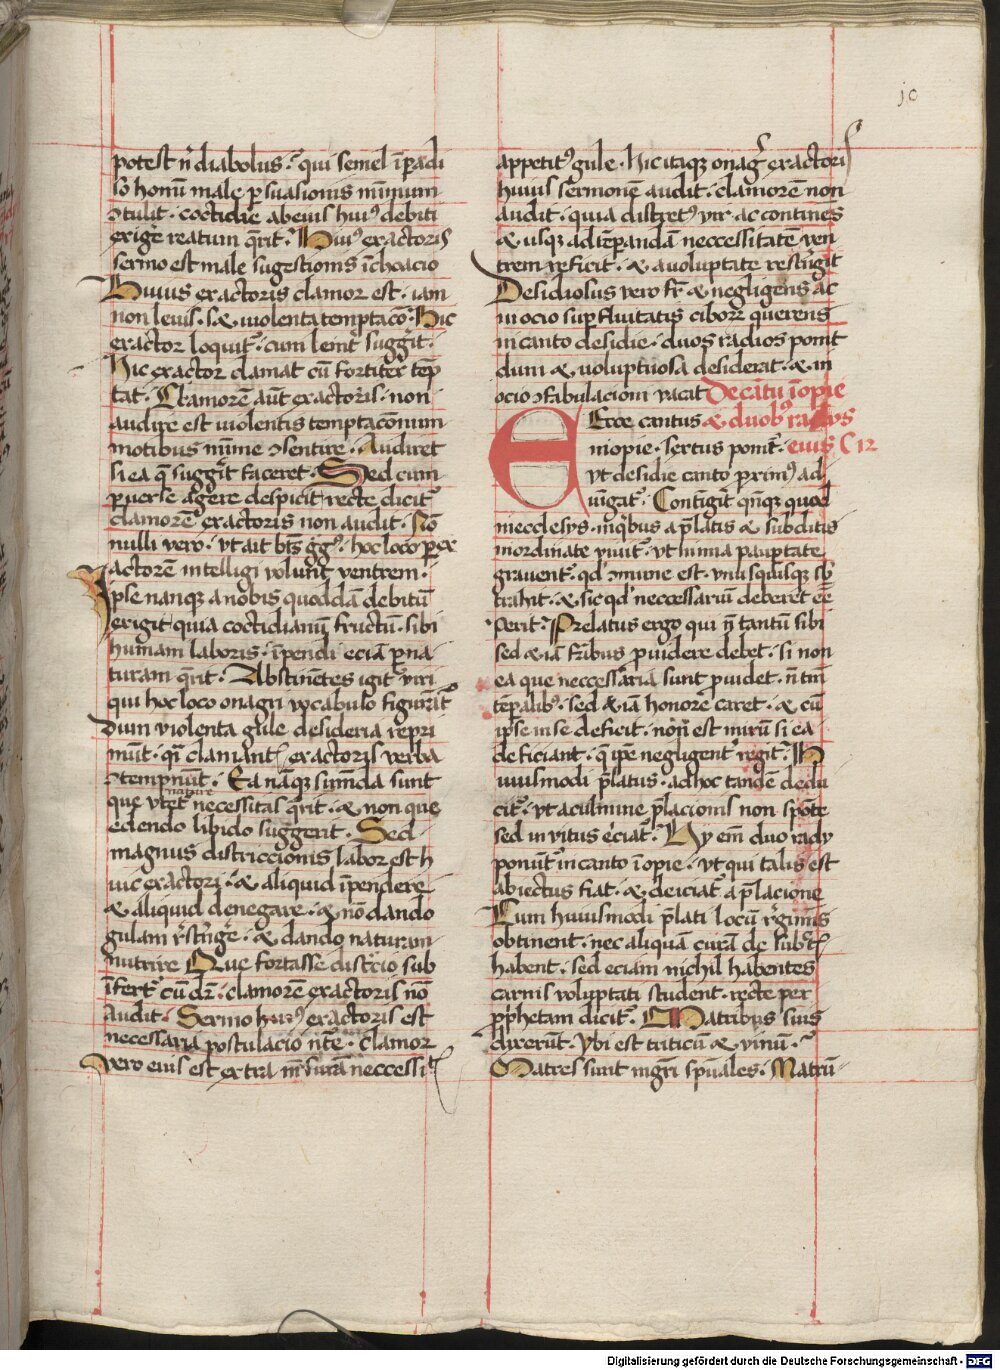 10
potest nͥ diabolus · qui semel ī paradi
so honū male persuasionis nūmum
ↄtulit · coctidie ab eius huiꝰ debiti
exigere reatum qͣrit · Huiꝰ exactoris
sermo est male sugestionis īchoacio
Huius exactoris clamor est · iam
non leuis · sꝫ violenta temptacō · Hic
exactor loquit᷑ · cum lenit᷑ suggͥit ·
Hic exactor clamat cū fortiter tēp
tat · Clamorē aūt exactoris · non
audire est violentis temptacōnum
motibus mīme ↄsentire · Audiret
si ea q̄ suggͥit faceret · Sed cum
ꝑuerse agere despicit recte dicit᷑
clamorē exactoris non audit · Nō
nulli vero · vt ait bt̄s gͥgͥꝰ · hoc loco ꝑ ex
actorē intelligi volunt ventrem ·
Ipse nanqꝫ a nobis quoddā debitū
exigit quia coctidianū fructū · sibi
humani laboris · īpendi eciā ꝑ na
turam qͣrit · Abstinētes igit᷑ viri
qui hoc loco onagri vocabulo figurāt᷑
dum violenta gule desideria repri
mūt · qͣi clamantꝭ exactoris verba
ↄtempnūt · Ea nāqꝫ sumēda sunt
nature
que vtet᷑ necessitas qͣrit · & non que
edendo libido suggerit · Sed
magnus districcionis labor est h
uic exactori · & aliquid īpendere
& aliquid denegare · & nō dando
gulam rͥstͥngͥe · & dando naturam
nutrire Que fortasse distͥccio sub
īfert᷑ cū dr̄ · clamorē exactoris nō
audit · Sermo huiꝰ exactoris est
necessaria postulacio nat̄e · clamor
vero eius est extra mēsurā neccessit᷑
appetitꝰ gule · Hic itaqꝫ onagͥ exactoris
huius sermonē audit · clamorē non
audit · quia discretꝰ vir ac continēs
& usqꝫ ad tēperandā neccessitatē ven
trem reficit · & a voluptate restͥngit
Desidiosus vero fr̄ & negligens ac
in ocio suꝑfluitatis ciborꝝ querens
in canto desidie · duos radios ponit
dum & voluptuosa desiderat · & in
ocio ↄfabulacioni vacat De cātu īopie
Ecce cantus & duobꝰ radijs
inopie · sextus ponit᷑ · eius C 12
vt desidie canto primꝰ ad
iūgat᷑ · Contigit qn̄qꝫ quod
in ecclesys · in qͥbus a p̄latis & subditis
inordinate viuit᷑ · vt nimia paupertate
grauent᷑ · qd̕ ↄmune est · vnusquisqꝫ sb̄
trahit · & sic qd̕ neccessariū deberet eē
ꝑerit · Prelatus ergo qui n̄ tantū sibi
sed & iā fr̄ibus ꝓuidere debet · si non
ea que neccessaria sunt ꝓuidet · n̄ tm̄
tēꝑalibꝰ · sed & iā honore caret · & cū
ipse in se deficit · nō est mirū si ea
deficiant · q̄ ipē negligent᷑ regit · H
uiusmodi p̄latus · ad hoc tandē dedu
cit᷑ · vt a culmine p̄lacionis non spōte
sed inuitus eiciat᷑ · Hy em̄ duo rady
ponūt᷑ in canto īopie · vt qui talis est
abiectus fiat · & deiciat᷑ a p̄lacione
Cum huiusmodi p̄lati locū rͥgiminis
obtinent · nec aliquā curā de subditꝭ
habent · sed eciam nichil habentes
carnis voluptati student · recte per
ꝓphetam dicit᷑ · Matribus suis
dixerūt · vbi est triticū & vinū ·
Matres sunt mgr̄i spūales · Matrū